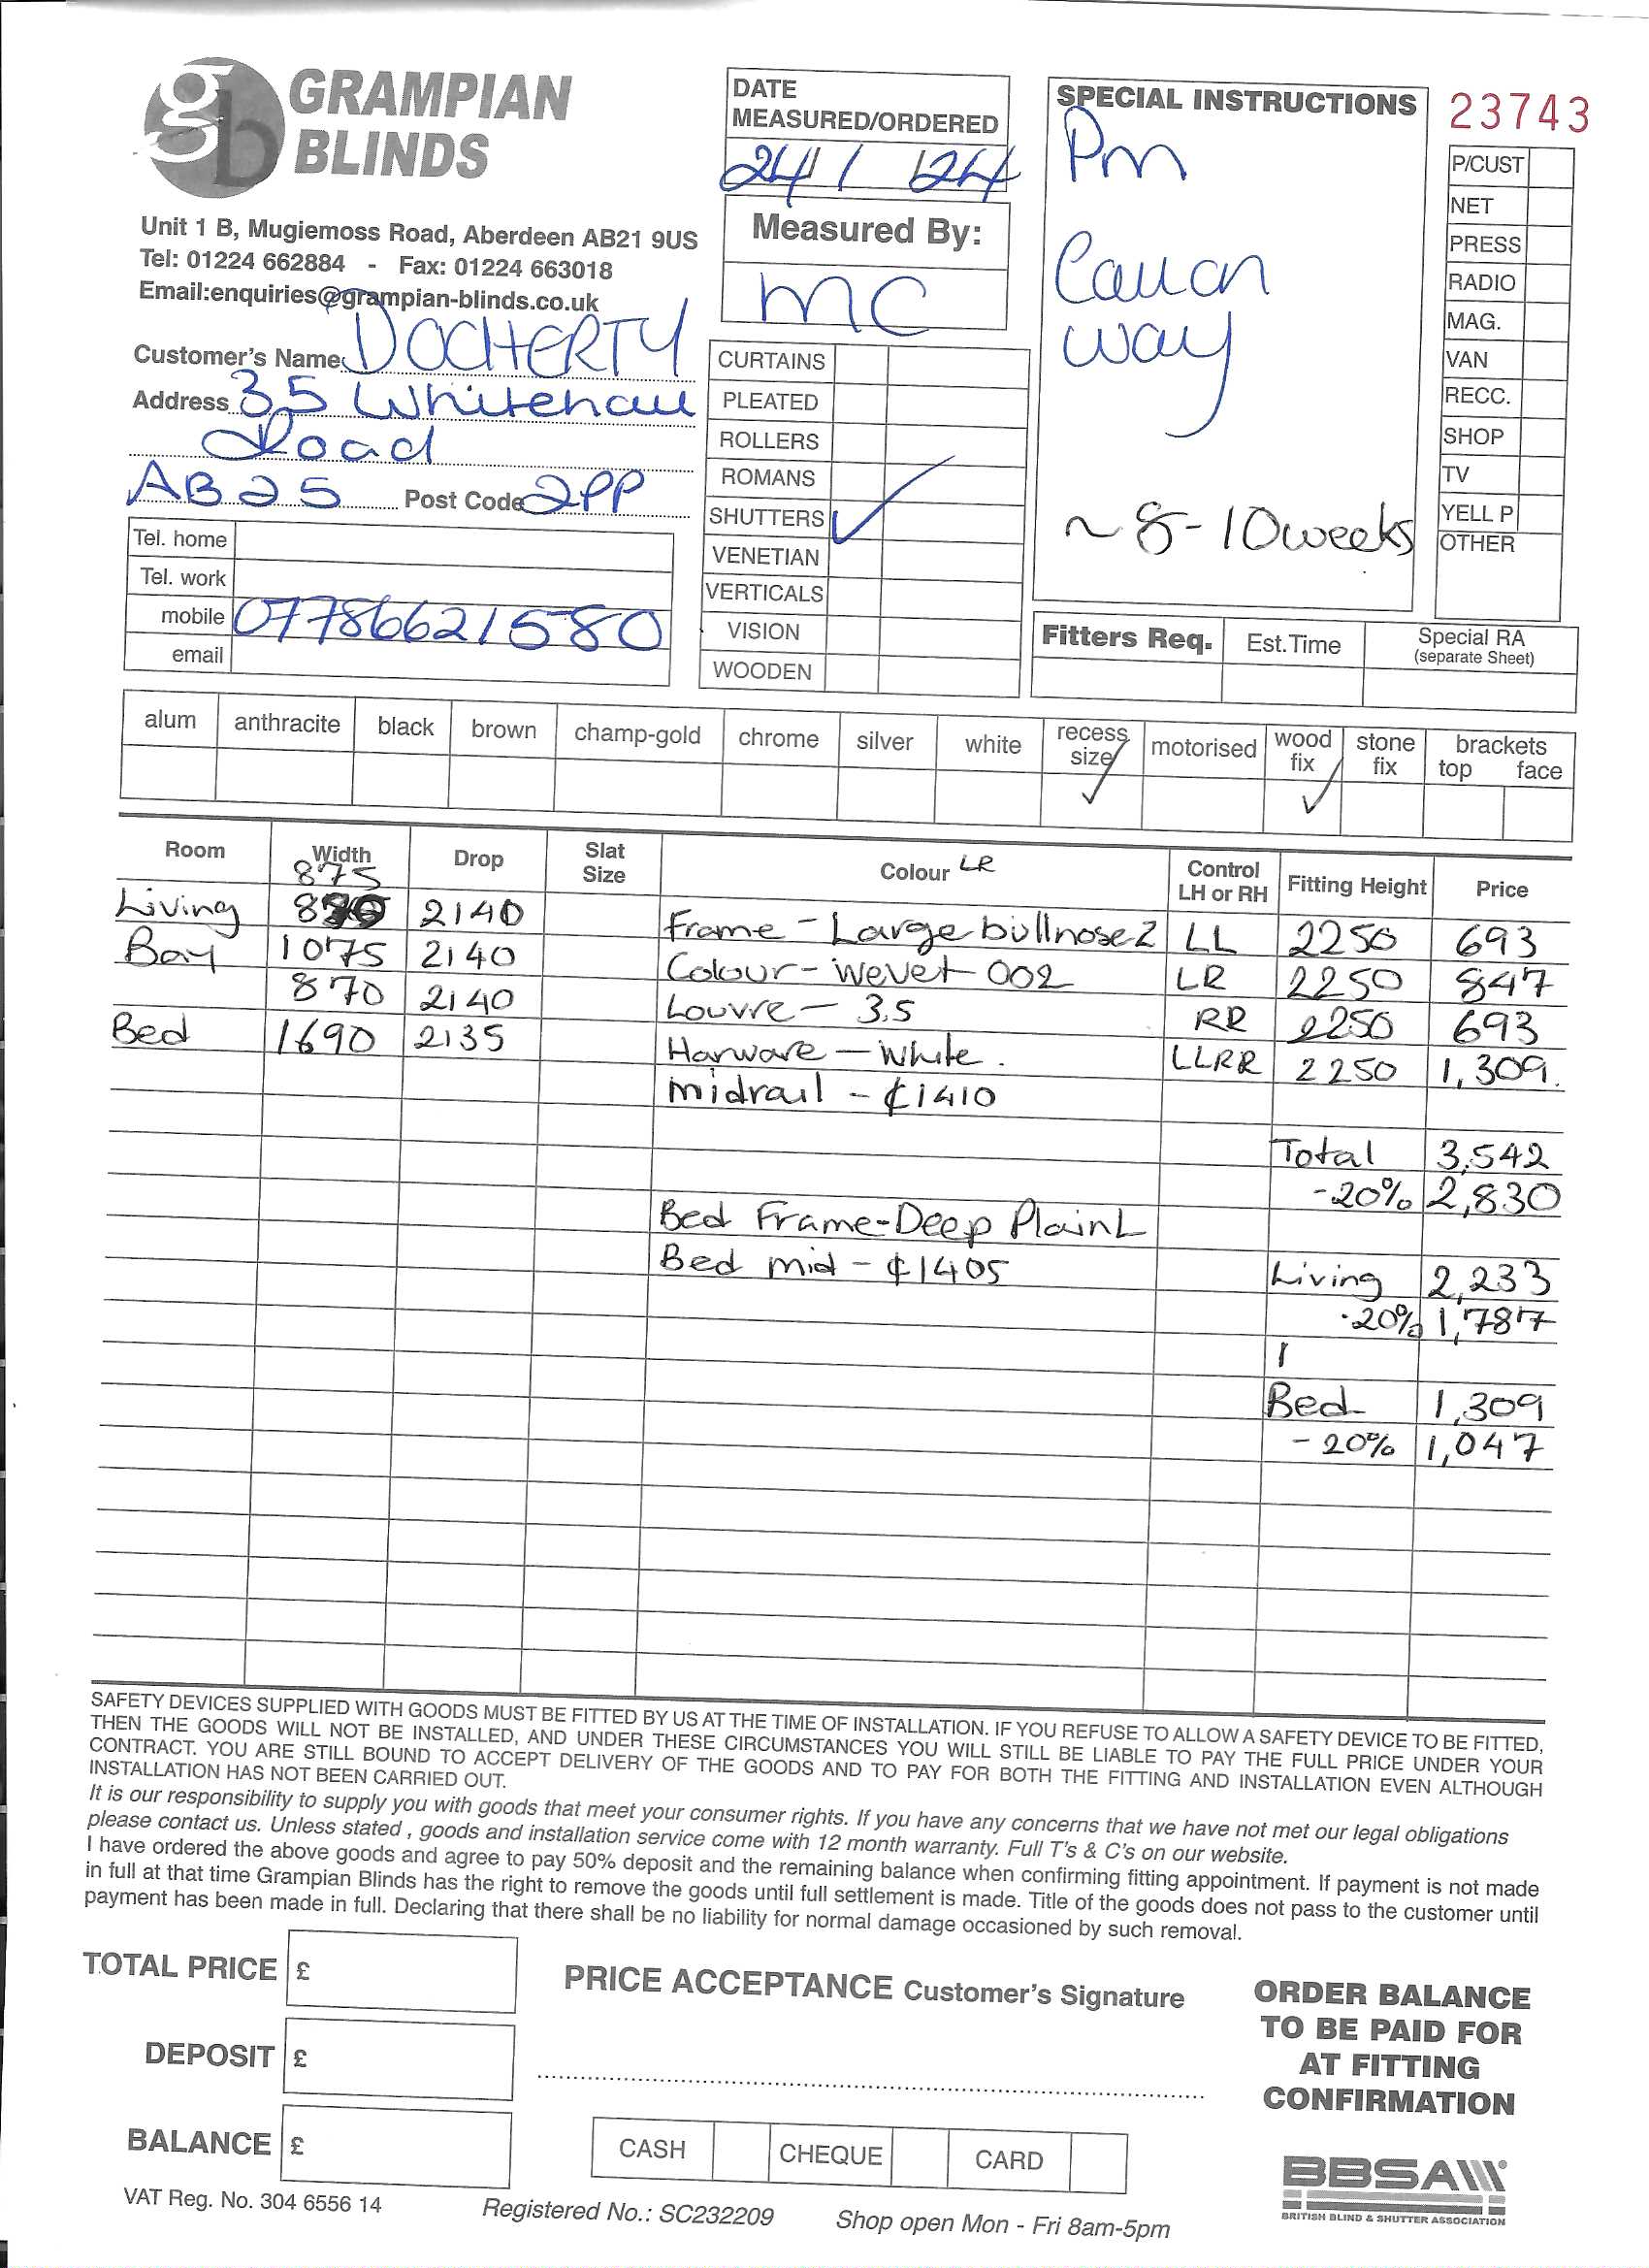 gb GRAMPIAN
BLINDS
Unit 1 B, Mugiemoss Road, Aberdeen AB21 9US
Tel: 01224 662884 - Fax: 01224 663018
Email:enquiries@grampian-blinds.co.uk
Customer's Name DOCHERTY
Address 35 Whitehall
Road
AB25 Post Code 2PP
Tel. home
Tel. work
mobile 07786621580
email
DATE
MEASURED/ORDERED
24/ /24
Measured By:
MC
CURTAINS
PLEATED
ROLLERS
ROMANS
SHUTTERS ✓
VENETIAN
VERTICALS
VISION
WOODEN
SPECIAL INSTRUCTIONS
Pm
Call on
way
~ 8-10 weeks
23743
P/CUST
NET
PRESS
RADIO
MAG.
VAN
RECC.
SHOP
TV
YELL P
OTHER
Fitters Req. Est.Time Special RA
(separate Sheet)
alum anthracite black brown champ-gold chrome silver white recess size ✓ motorised wood fix ✓ stone fix brackets top face
Room Width Drop Slat Size Colour LR Control LH or RH Fitting Height Price
875
Living 2140 Frame - Large bullnose Z LL 2250 693
Bay 1075 2140 Colour - Wevet 002 LR 2250 847
870 2140 Louvre - 3.5 RR 2250 693
Bed 1690 2135 Harware - White. LLRR 2250 1,309.
midrail - ₵1410
Total 3,542
-20% 2,830
Bed Frame - Deep Plain L
Bed mid - ₵1405
Living 2,233
-20% 1,787
Bed 1,309
- 20% 1,047
SAFETY DEVICES SUPPLIED WITH GOODS MUST BE FITTED BY US AT THE TIME OF INSTALLATION. IF YOU REFUSE TO ALLOW A SAFETY DEVICE TO BE FITTED,
THEN THE GOODS WILL NOT BE INSTALLED, AND UNDER THESE CIRCUMSTANCES YOU WILL STILL BE LIABLE TO PAY THE FULL PRICE UNDER YOUR
CONTRACT. YOU ARE STILL BOUND TO ACCEPT DELIVERY OF THE GOODS AND TO PAY FOR BOTH THE FITTING AND INSTALLATION EVEN ALTHOUGH
INSTALLATION HAS NOT BEEN CARRIED OUT.
It is our responsibility to supply you with goods that meet your consumer rights. If you have any concerns that we have not met our legal obligations
please contact us. Unless stated , goods and installation service come with 12 month warranty. Full T's & C's on our website.
I have ordered the above goods and agree to pay 50% deposit and the remaining balance when confirming fitting appointment. If payment is not made
in full at that time Grampian Blinds has the right to remove the goods until full settlement is made. Title of the goods does not pass to the customer until
payment has been made in full. Declaring that there shall be no liability for normal damage occasioned by such removal.
TOTAL PRICE £
DEPOSIT £
BALANCE £
PRICE ACCEPTANCE Customer's Signature
CASH CHEQUE CARD
ORDER BALANCE
TO BE PAID FOR
AT FITTING
CONFIRMATION
BBSA
BRITISH BLIND & SHUTTER ASSOCIATION
VAT Reg. No. 304 6556 14 Registered No.: SC232209 Shop open Mon - Fri 8am-5pm